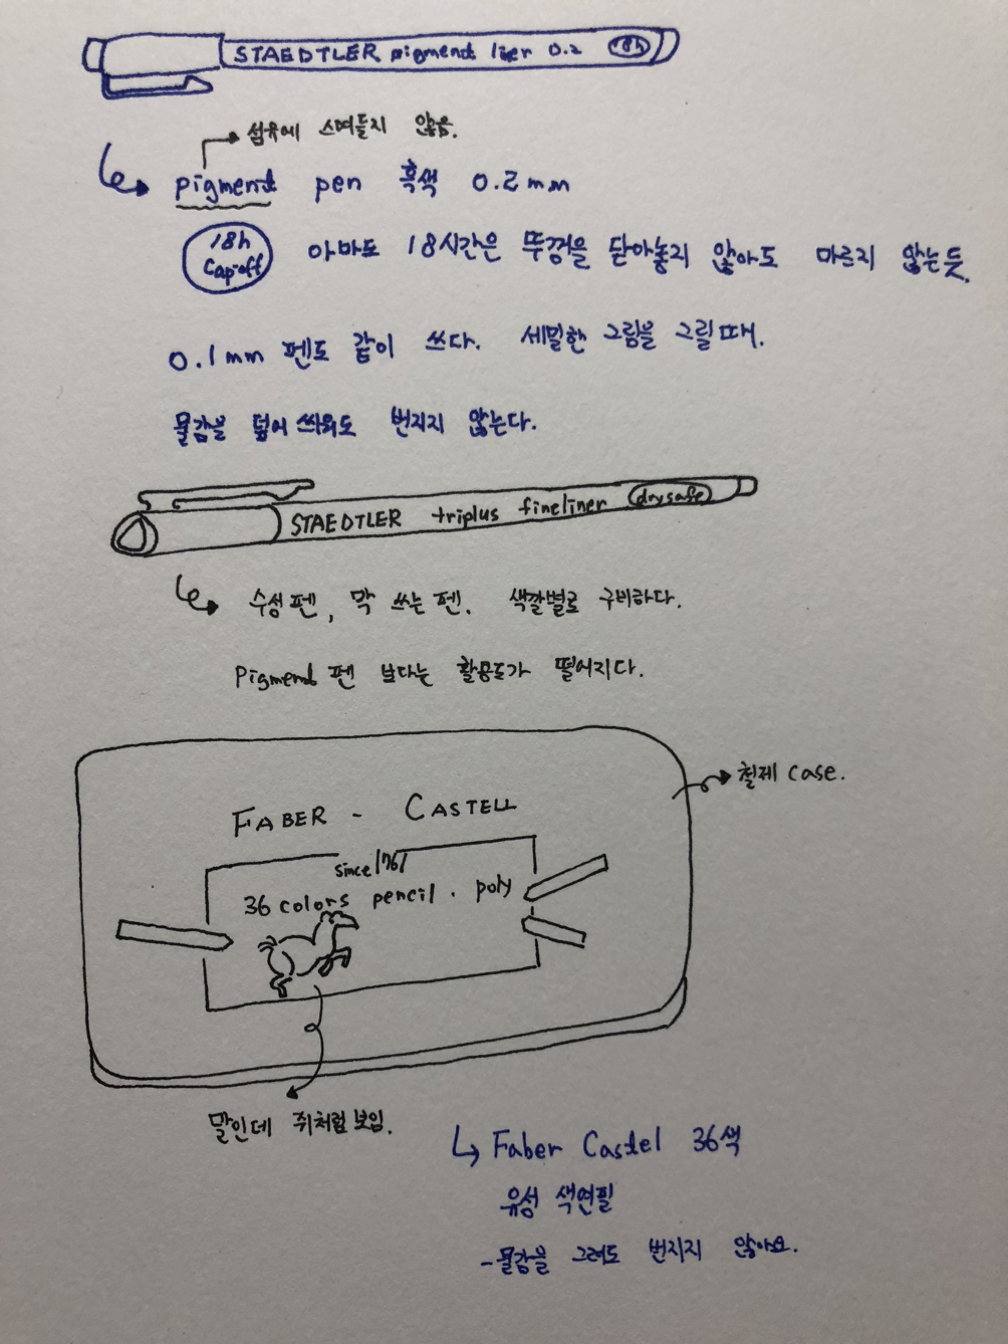 STAEDTLER pigmend lier 0.2 18h
섬유에 스며들지 않음.
pigmend pen 흑색 0.2mm
18h
Cap-off
아마도 18시간은 뚜껑을 닫아놓지 않아도 마르지 않는듯.
0.1mm 펜도 같이 쓰다. 세밀한 그림을 그릴때.
물감을 덮어 씌워도 번지지 않는다.
STAEDTLER triplus fineliner drysafe
수성펜, 막 쓰는 펜. 색깔별로 구비하다.
Pigmend 펜 보다는 활용도가 떨어지다.
철제 case.
FABER - CASTELL
since 1761
36 colors pencil . poly
말인데 쥐처럼 보임.
Faber Castel 36색
유성 색연필
-물감을 그려도 번지지 않아요.